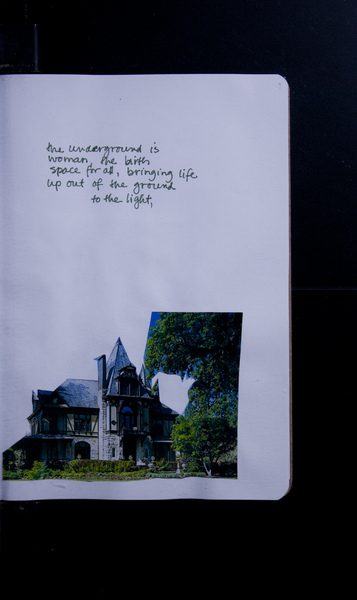 the underground is
woman, the birth
space for all, bringing life
up out of the ground
to the light,